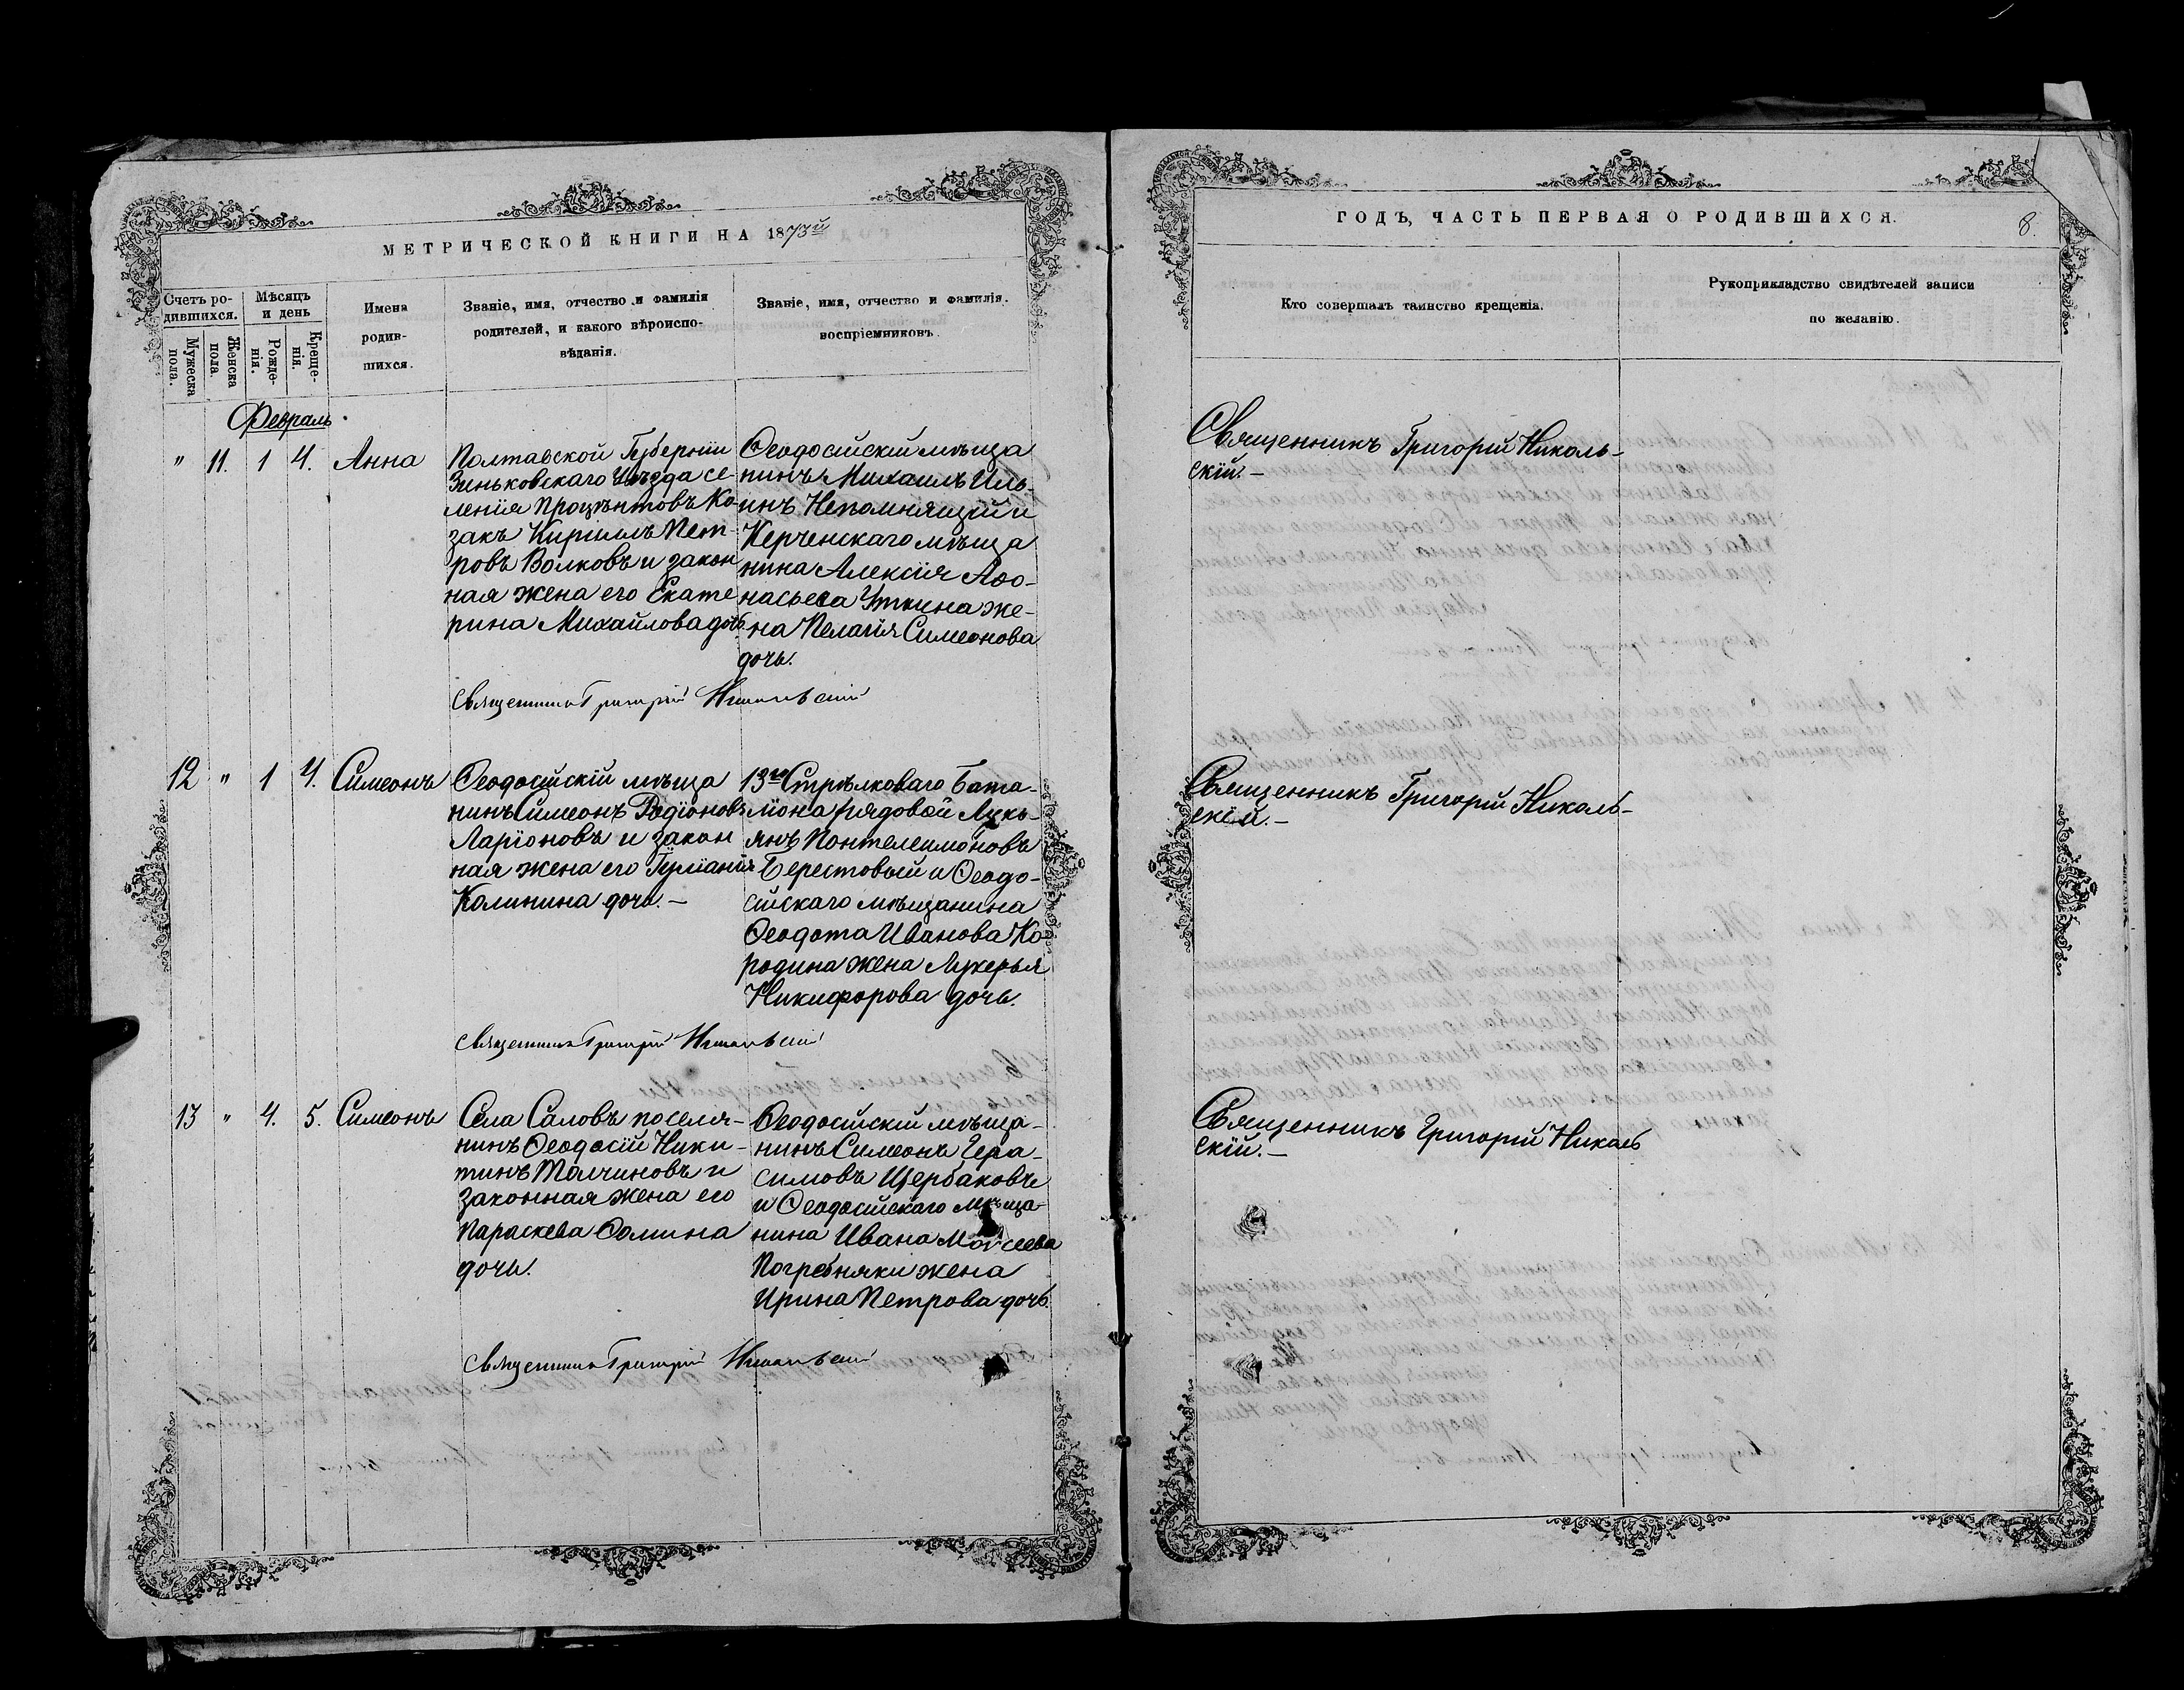 МЕТРИЧЕСКОЙ КНИГИ НА 1873й
Счетъ ро-
дившихся.
Мужеска
пола.
Женска
пола.
Мѣсяцъ
и день
Рожде-
нія.
Креще-
нія.
Имена
родив-
шихся.
Званіе, имя, отчество и фамилія
родителей, и какого вѣроиспо-
вѣданія.
Званіе, имя, отчество и фамилія.
воспріемниковъ.
Февраль.
" 11. 1 4. Анна
Полтавской Губерніи
Зиньковскаго Уѣзда се-
ленія Ко-
закъ Кириллъ Пет-
ровъ Волковъ и закон
ная жена его Екате
рина Михайлова дочь
Ѳеодосійскій мѣща
нинъ Михаилъ Иль-
инъ Непомнящій и
Керченскаго мѣща
нина Алексія Аѳо-
насьева Уткина же-
на Пелагія Симеонова
дочь.
Священникъ Григорій Никольскій
12 " 1 4. Симеонъ
Ѳеодосійскій мѣща
нинъ Симеонъ Родіоновъ
Ларіоновъ и закон
ная жена его
Калинина дочь.-
13го Стрѣлковаго Бата-
ліона рядовой Лукь-
янъ Понтелеимоновъ
Берестовый и Ѳеодо-
сійскаго мѣщанина
Ѳеодота Иванова Ко-
родина жена Лукерья
Никифорова дочь.
Священникъ Григорій Никольскій
13 " 4. 5. Симеонъ
Села Саловъ поселя-
нинъ Ѳеодосій Ники-
тинъ Толчиновъ и
законная жена его
Параскева Ѳомина
дочь.
Ѳеодосійскій мѣща-
нинъ Симеонъ Гера-
симовъ Щербаковъ
и Ѳеодосійскаго мѣща-
нина Ивана Моѵсеева
Погребняки жена
Ирина Петрова дочь.
Священникъ Григорій Никольскій
ГОДЪ, ЧАСТЬ ПЕРВАЯ О РОДИВШИХСЯ.
8.
Кто совершалъ таинство крещенія.
Рукоприкладство свидѣтелей записи
по желанію.
Священникъ Григорій Николь-
скій.-
Священникъ Григорій Николь-
скій.-
Священникъ Григорій Николь
скій.-